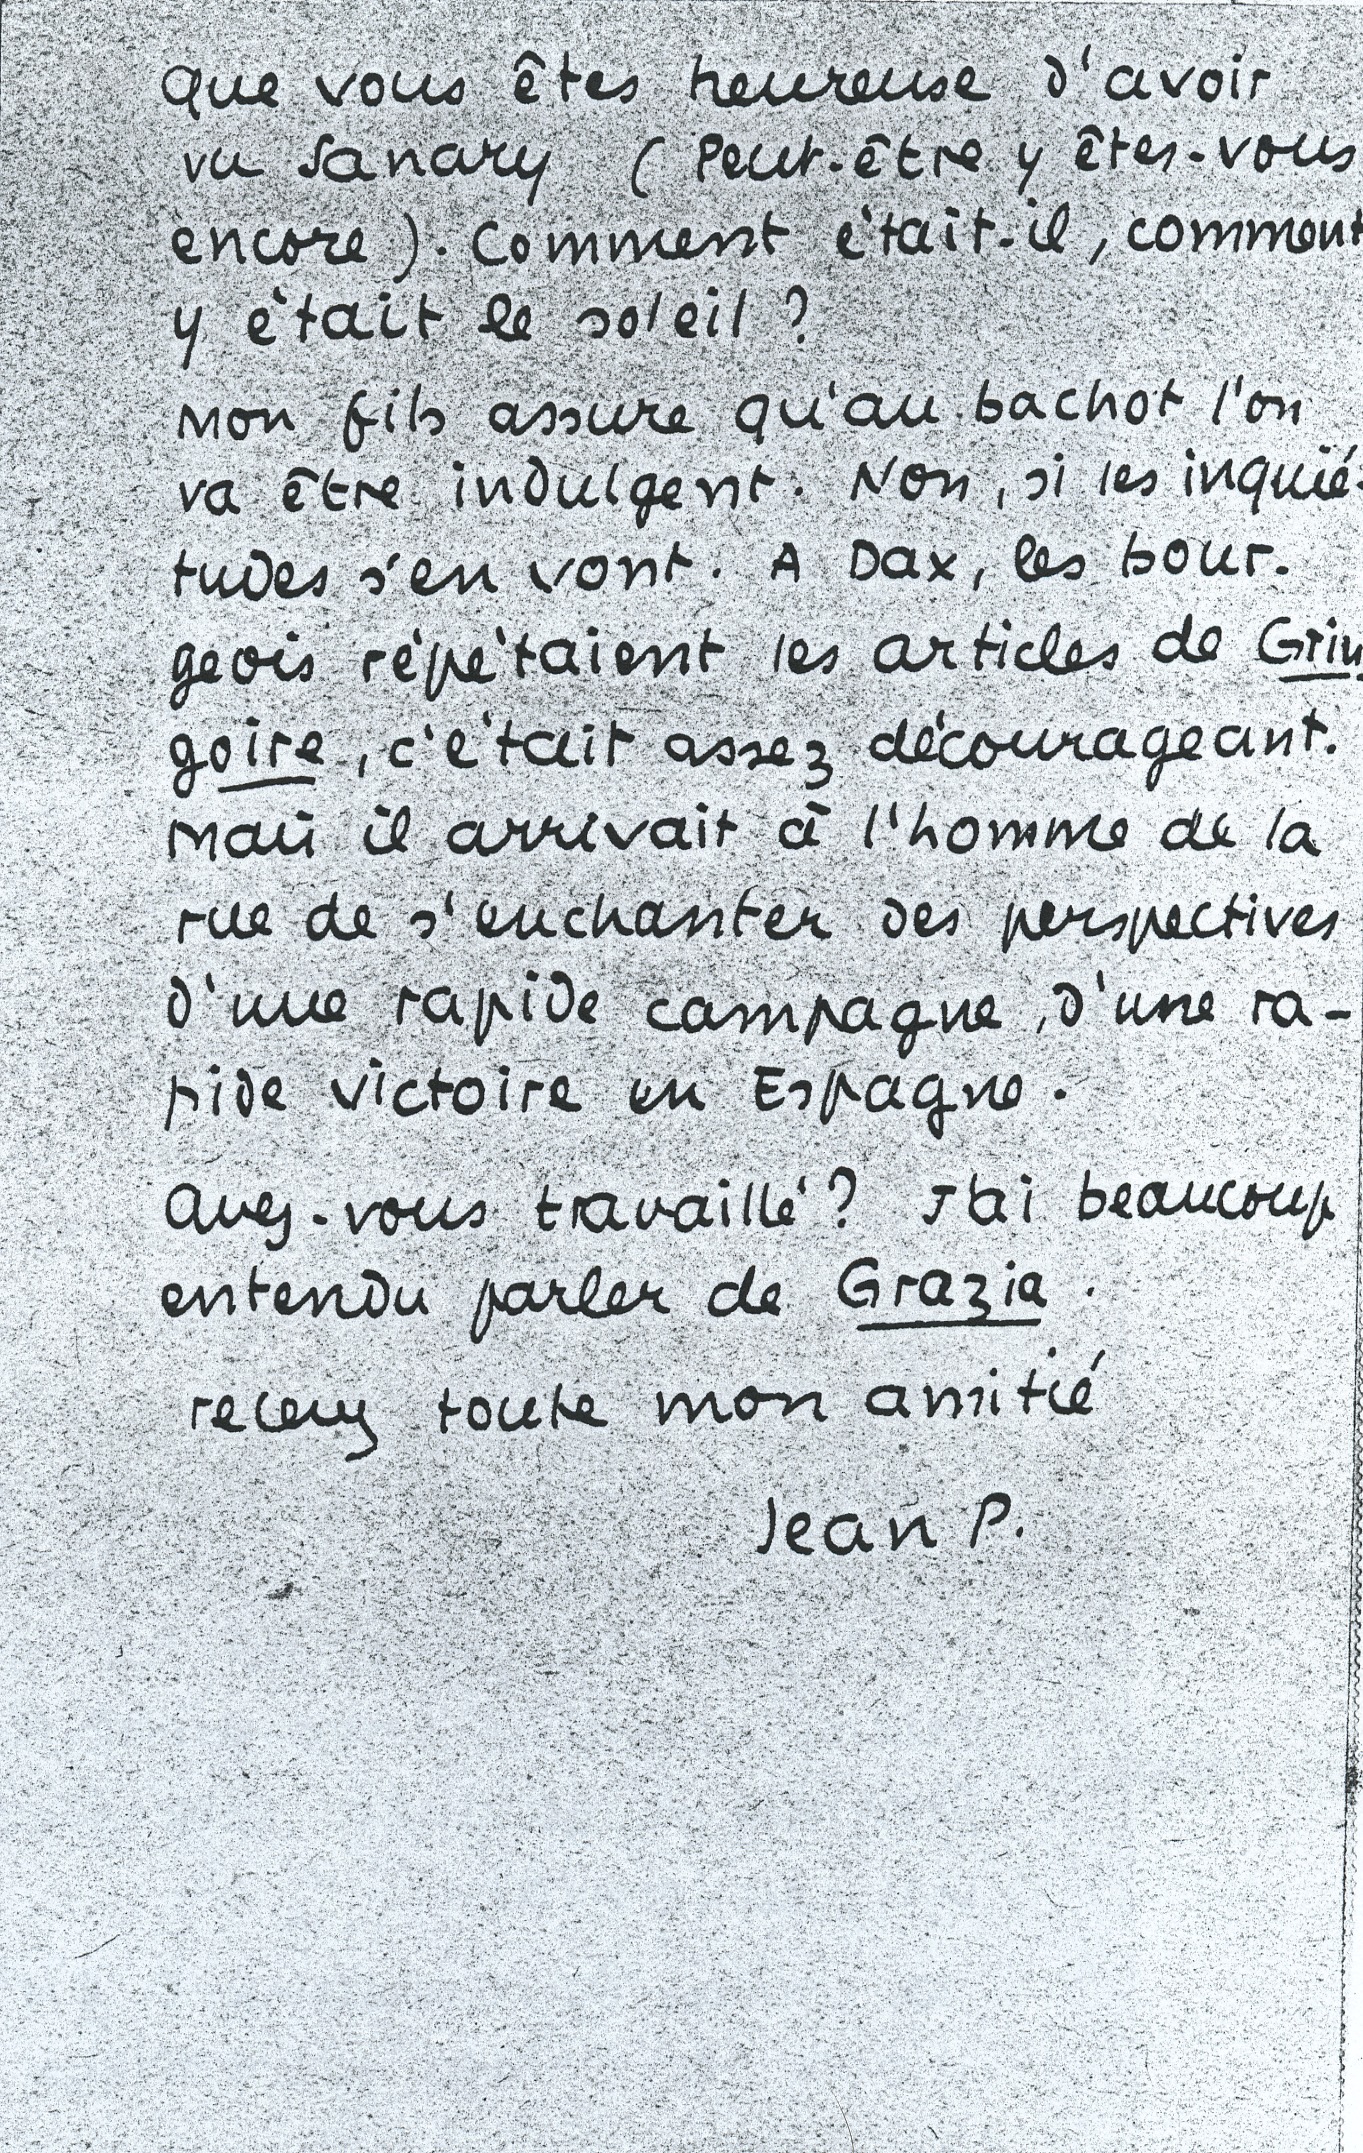 Que vous êtes heureuse d'avoir
vu Sanary (Peut-être y êtes-vous
encore). Comment était-il, comment
y était le soleil ?
Mon fils assure qu'au bachot l'on
va être indulgent. Non, si les inquié-
tudes s'en vont. A Dax, les bour-
geois répétaient les articles de Grin
goire, c'était assez décourageant.
Mais il arrivait à l'homme de la
rue de s'enchanter des perspectives
d'une rapide campagne, d'une ra-
pide victoire en Espagne.
Avez-vous travaillé ? J'ai beaucoup
entendu parler de Grazia.
recevez toute mon amitié
Jean P.